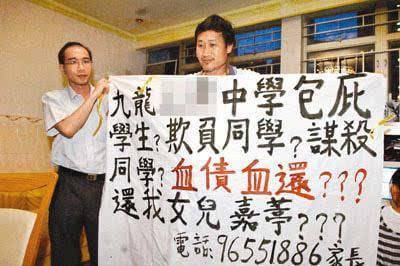 九龍 中學包庇
學生?欺員同學?謀殺
同學?血債血還???
還我女兒 嘉葶???
電話:96551886 家長